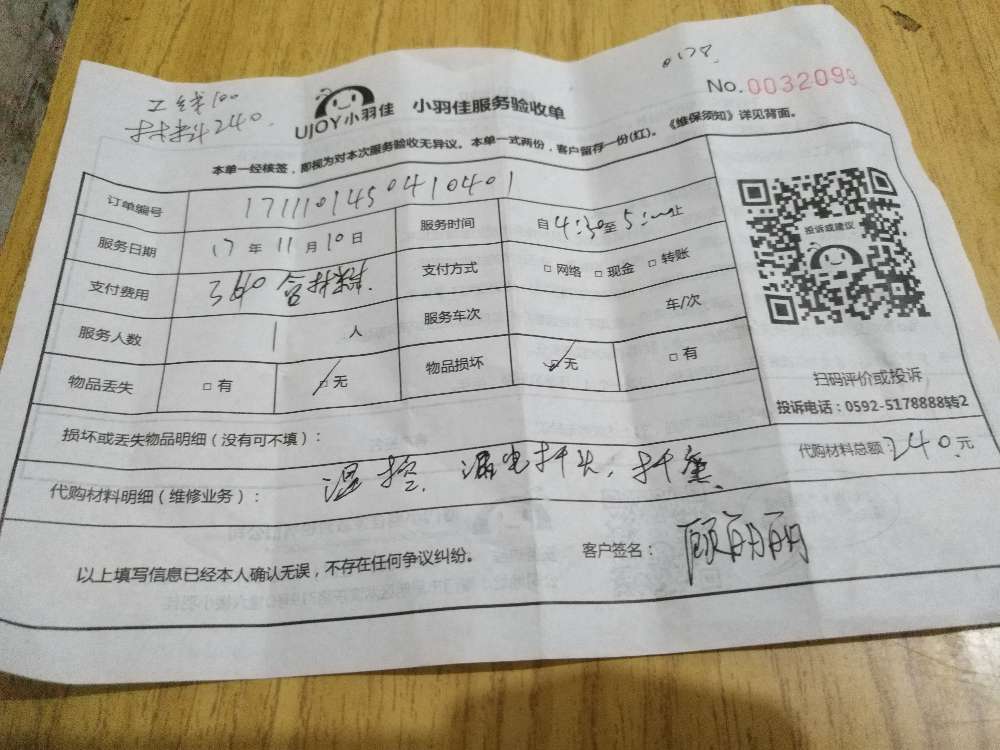 0178
工钱100
材料240.
UJOY小羽佳 小羽佳服务验收单
No.0032099
本单一经核签，即视为对本次服务验收无异议。本单一式两份，客户留存一份(红)。《维保须知》详见背面。
订单编号 1711101450410401
服务日期 17 年 11 月 10 日 服务时间 自 4:30 至 5: 止
支付费用 340 含材料. 支付方式 □ 网络 □ 现金 □ 转账
服务人数 1 人 服务车次 车/次
物品丢失 □ 有 □ 无 物品损坏 □ 无 □ 有
投诉或建议
扫码评价或投诉
投诉电话：0592-5178888转2
损坏或丢失物品明细（没有可不填）：
代购材料明细（维修业务）： 温控. 漏电
代购材料总额：240.元
以上填写信息已经本人确认无误，不存在任何争议纠纷。 客户签名：